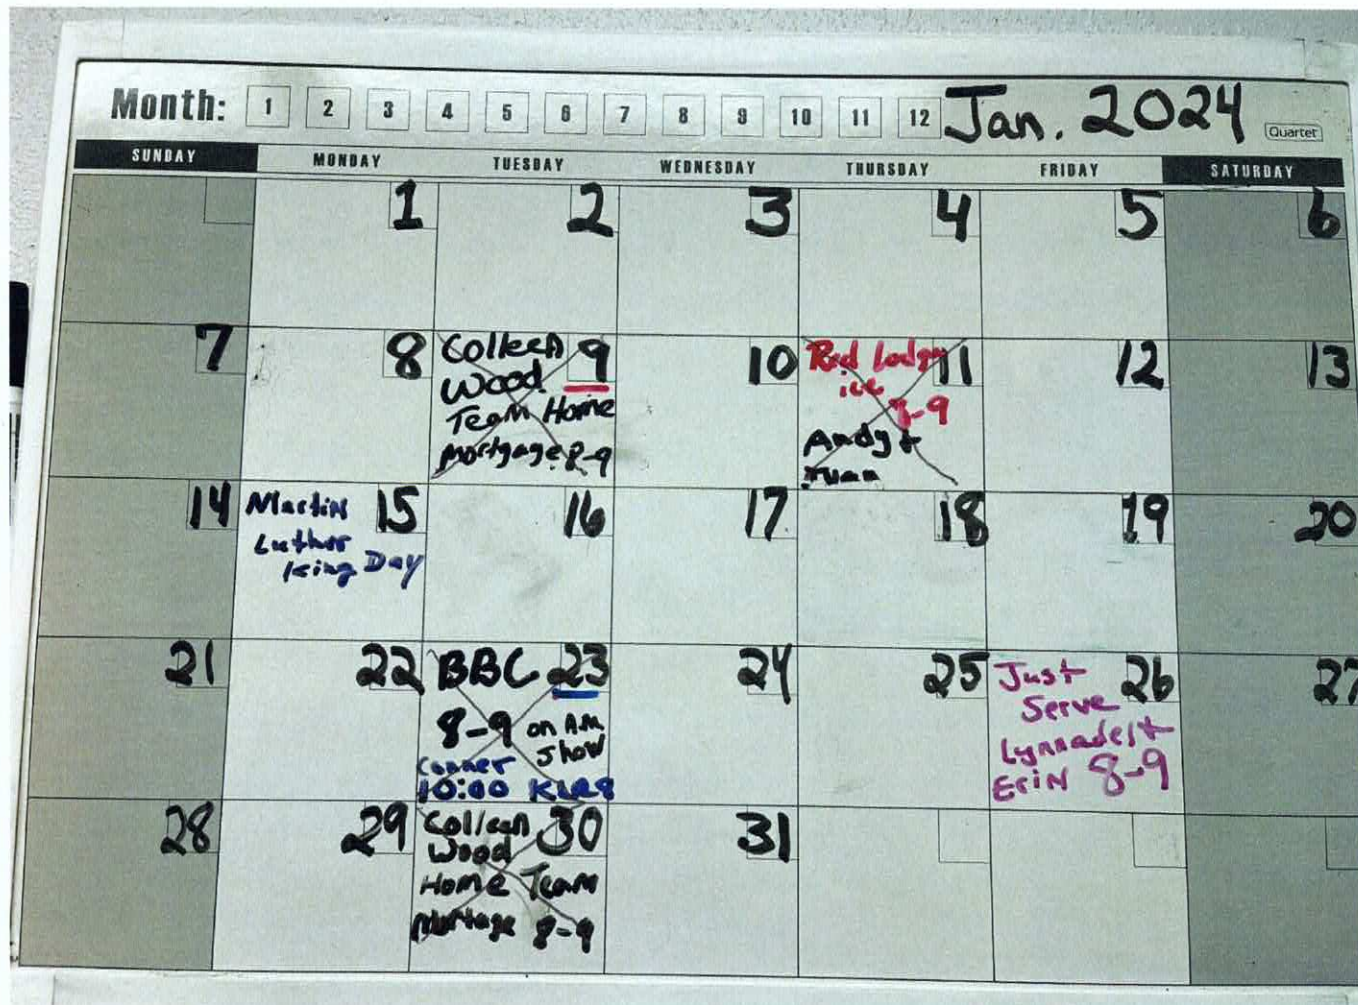 Month: 1 2 3 4 5 6 7 8 9 10 11 12 Jan. 2024
Quartet
SUNDAY MONDAY TUESDAY WEDNESDAY THURSDAY FRIDAY SATURDAY
1 2 3 4 5 6
7 8
Colleen 9
Wood
Team Home
Mortgage 8-9
10
Red Lodge 11
ice
8-9
Andy +
12 13
14
Martin 15
Luther
King Day
16 17 18 19 20
21 22
BBC 23
8-9 on A.M.
Show
Conner
10:00
24 25
Just 26
Serve
Erin 8-9
27
28 29
Colleen 30
Wood
Home Team
Mortage 8-9
31